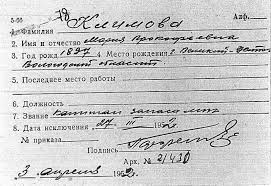 5-65 18 Алф.
1. Фамилия Климова
2. Имя и отчество Мария Прокофьевна
3. Год рожд. 1897 4. Место рождения г. Великий-Устюг
Вологодской области
5. Последнее место работы
6. Должность
7. Звание Капитан запаса
8. Дата исключения 27 III 1952 г.
№ приказа
Подпись
Арх. № 21430
3 апреля 1952 г.